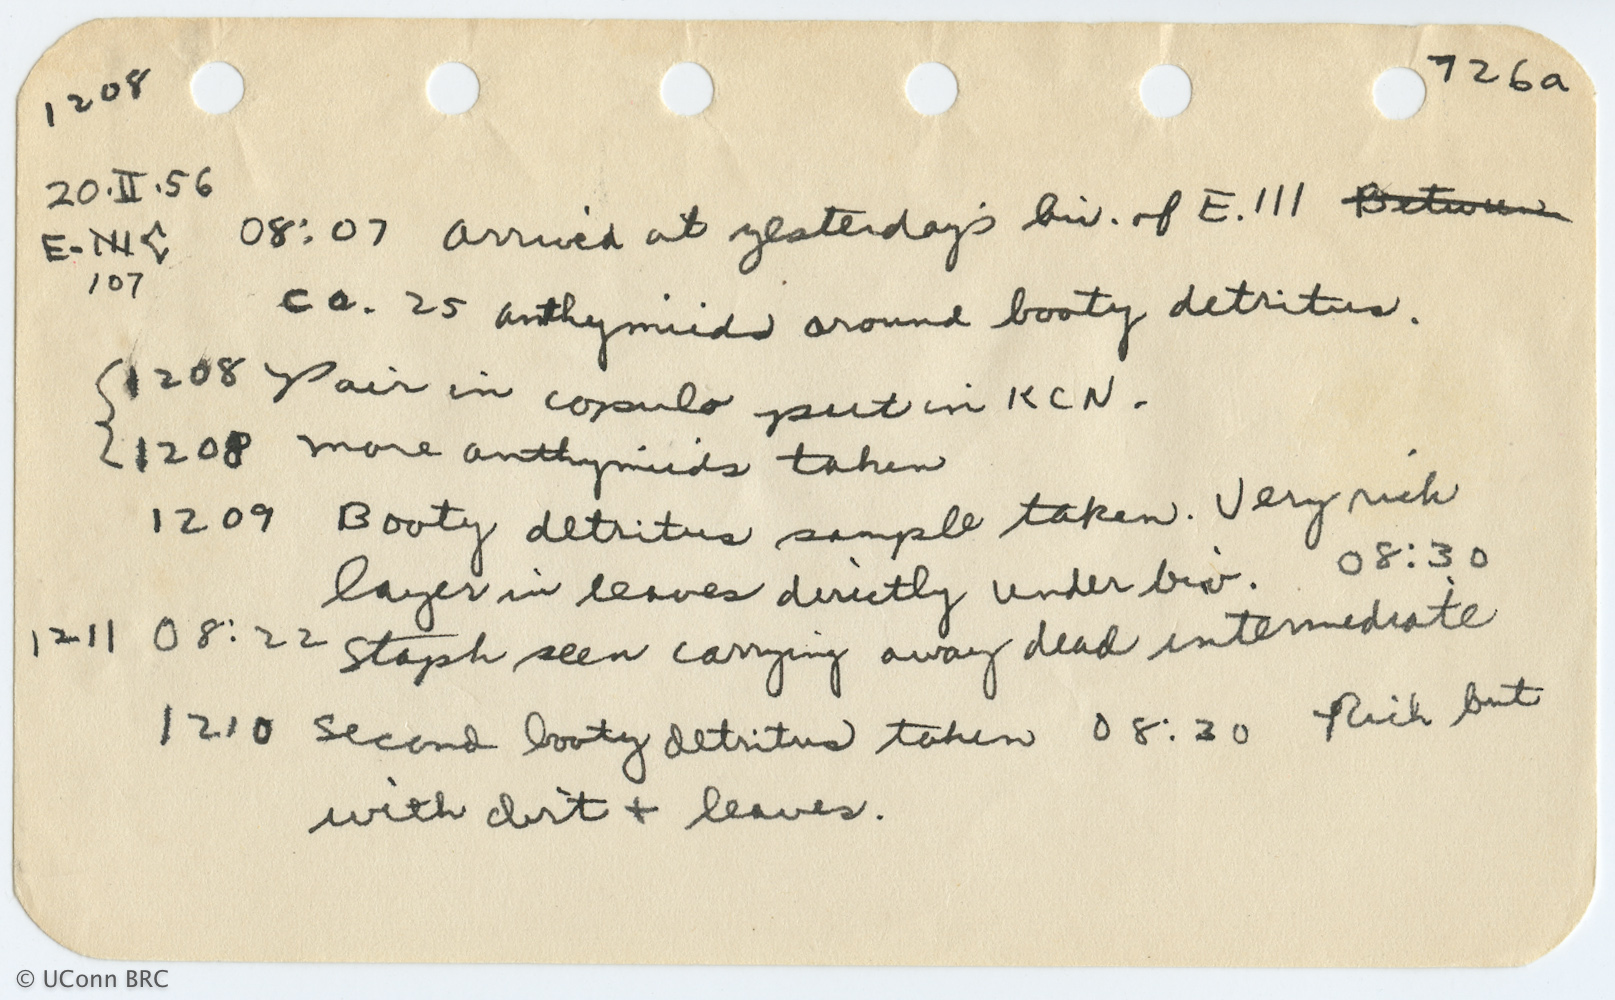 1208
726a
20.II.56
E-III
107
08:07 Arrived at yesterday's biv. of E.III Between
ca. 25 anthymiids around booty detritus.
1208 Pair in copulo put in KCN.
1208 more anthymiids taken
1209 Booty detritus sample taken. Very rich
layer in leaves directly under biv. 08:30
1211 08:22 Staph seen carrying away dead intermediate
1210 Second booty detritus taken 08:30 Rich but
with dirt + leaves.
© UConn BRC